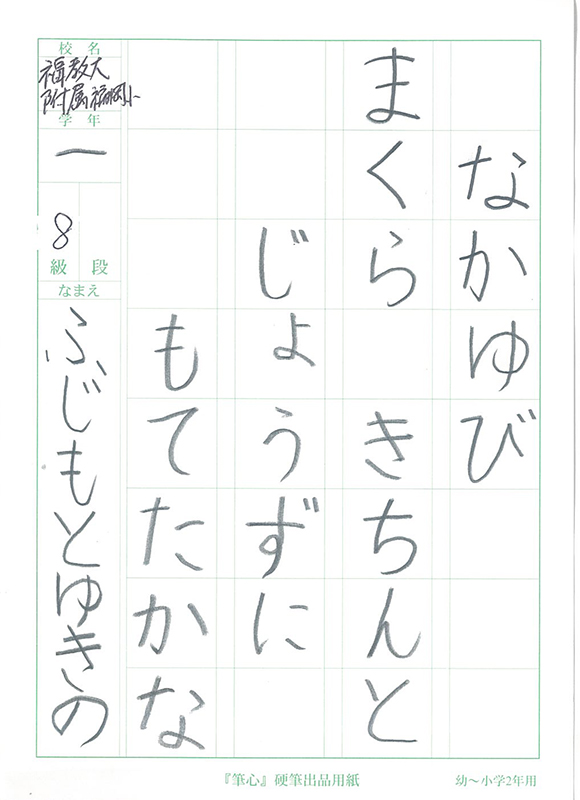 なかゆび
まくら　きちんと
じょうずに
もてたかな
校名
福教大
附属福岡小
学年
一
8
級　段
なまえ
ふじもとゆきの
『筆心』硬筆出品用紙
幼〜小学2年用